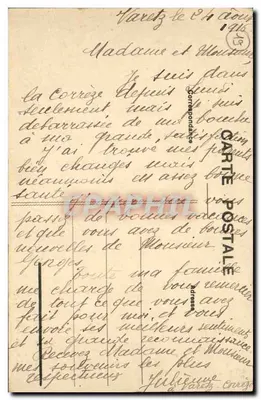 Varetz le 24 août
1916
Madame et Monsieur,
Je suis dans
la Corrèze depuis
seulement mais je suis
débarrassée de
à ma grande satisfaction
j'ai trouvé mes parents
bien changés mais
néanmoins en assez bonne
santé
passé de bonnes vacances
et que vous avez de bonnes
nouvelles de Monsieur
Georges.
Toute ma famille
me charge de vous remercier
de tout ce que vous avez
fait pour moi et vous
envoie ses meilleurs sentiments
et sa grande reconnaissance
Recevez Madame et Monsieur
mes souvenirs les plus
respectueux
Julienne
à Varetz Corrèze
CARTE POSTALE
Adresse
CPARAMA